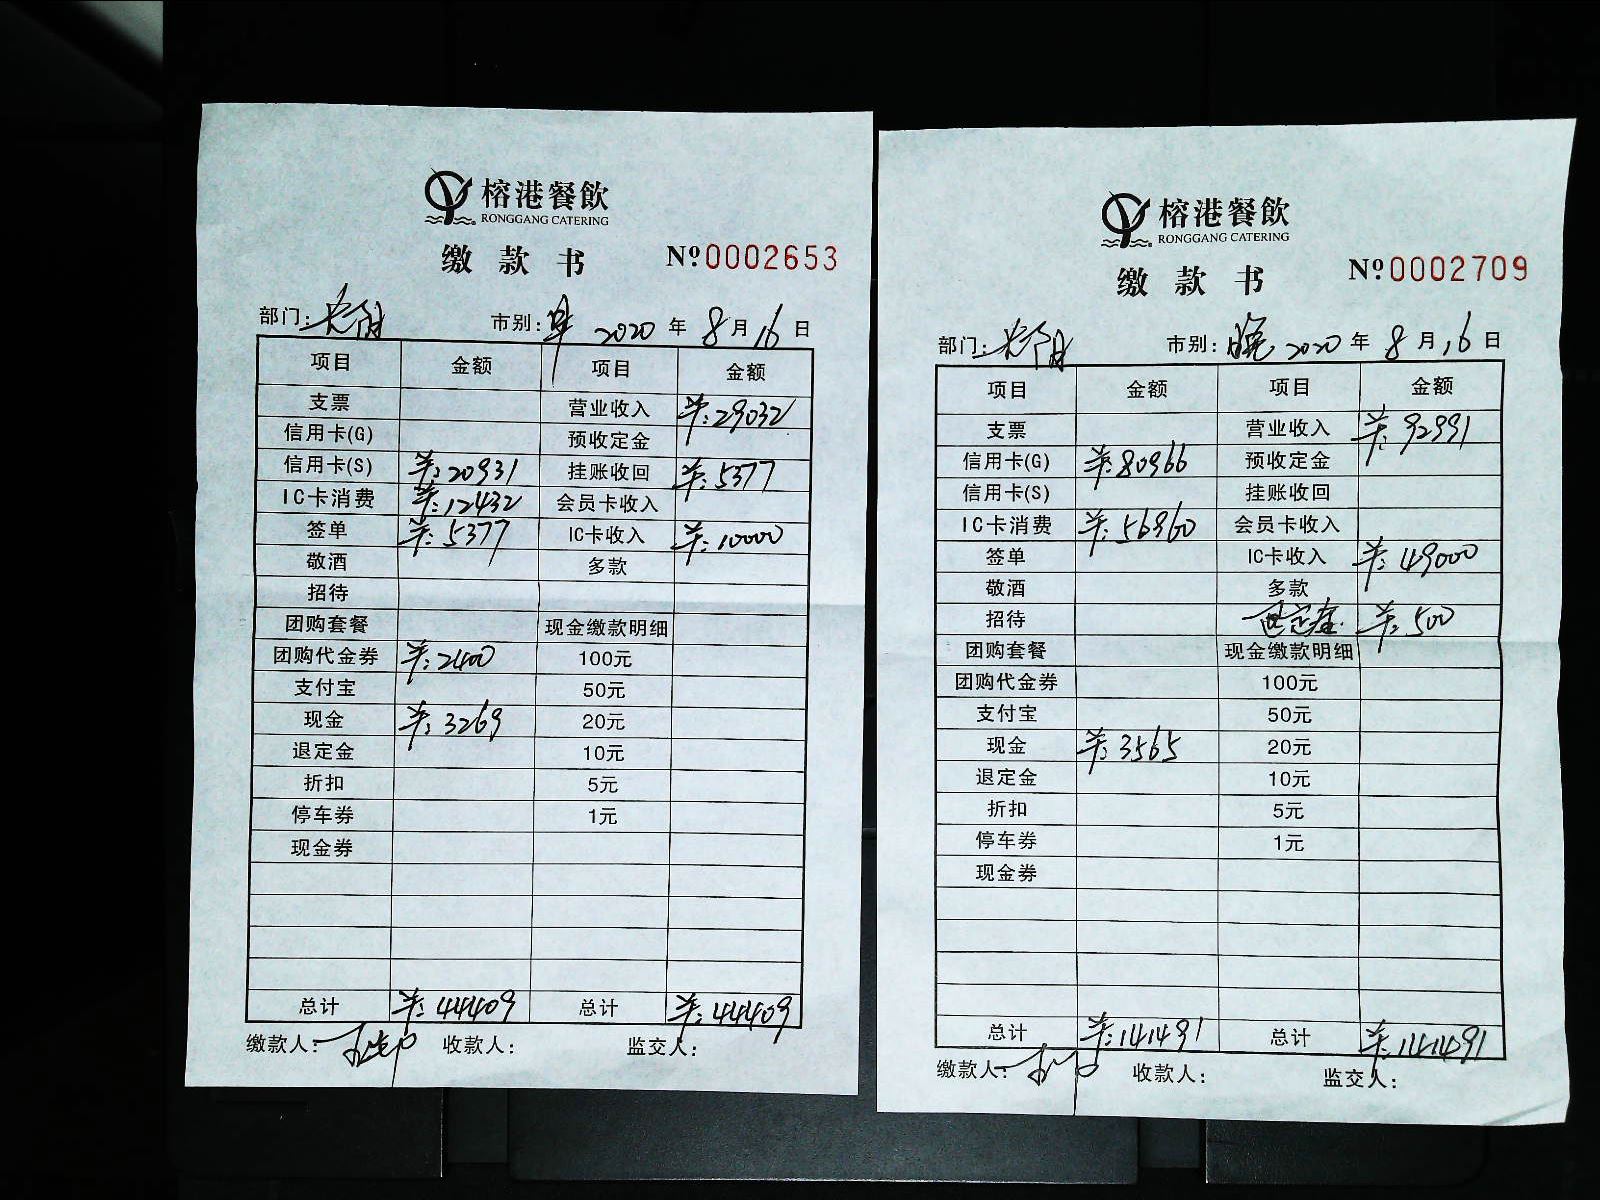 榕港餐飲
RONGGANG CATERING
缴款书 №0002653
部门: 市别: 早 2020 年 8 月 16 日
项目 金额 项目 金额
支票 营业收入 羊:29032
信用卡(G) 预收定金
信用卡(S) 羊:20931 挂账收回 羊:5377
IC卡消费 羊:12432 会员卡收入
签单 羊:5377 IC卡收入 羊:10000
敬酒 多款
招待
团购套餐 现金缴款明细
团购代金券 羊:2400 100元
支付宝 50元
现金 羊:3269 20元
退定金 10元
折扣 5元
停车券 1元
现金券
总计 羊:44409 总计 羊:44409
缴款人: 收款人: 监交人:
榕港餐飲
RONGGANG CATERING
缴款书 №0002709
部门: 市别: 晚 2020 年 8 月 16 日
项目 金额 项目 金额
支票 营业收入 羊:92991
信用卡(G) 羊:80966 预收定金
信用卡(S) 挂账收回
IC卡消费 羊:56960 会员卡收入
签单 IC卡收入 羊:49000
敬酒 多款
招待 羊:500
团购套餐 现金缴款明细
团购代金券 100元
支付宝 50元
现金 羊:3565 20元
退定金 10元
折扣 5元
停车券 1元
现金券
总计 羊:141491 总计 羊:141491
缴款人: 收款人: 监交人: